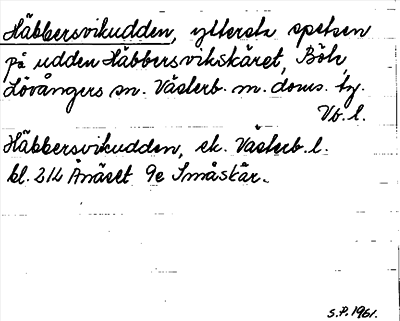 Häbbersvikudden, yttersta spetsen
på udden Häbbersvikskäret, Böle,
Lövångers sn. Västerb. m. doms. tg.
Vb. l.
Häbbersvikudden, ek. Västerb. l.
bl. 214 Ånäset 9e Småskär.
S.P. 1961.